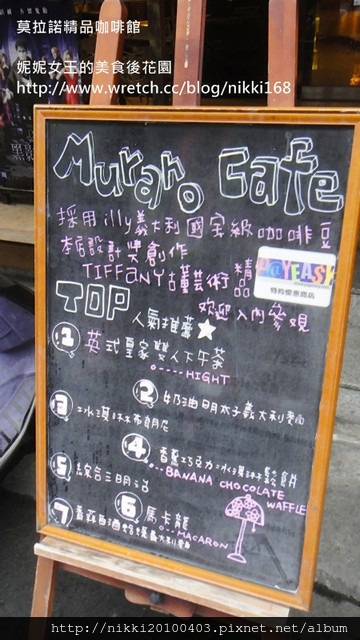 莫拉諾精品咖啡館
妮妮女王的美食後花園
http://www.wretch.cc/blog/nikki168
Murano Cafe
採用illy義大利國家級咖啡豆
李居設計獎創作
TIFFANY古董藝術精品
歡迎入內參觀
PAYEASY
特約優惠商店
TOP
人氣推薦
1 英式皇家雙人下午茶
HIGHT
2 奶油明太子義大利麵
3 冰漠沐布朗尼
4 香蕉巧克力冰漠沐鬆餅
BANANA CHOCOLATE
WAFFLE
5 綜合三明治
6 馬卡龍
MACARON
7 義大利麵
http://nikki20100403.pixnet.net/album